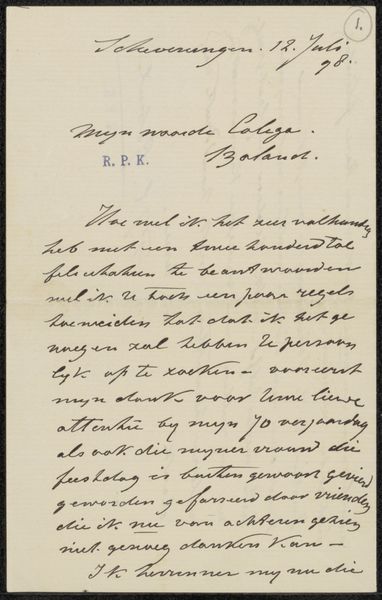 1.
Scheveningen. 12 Juli
98.
Mijn waarde Colega.
R. P. K.
Boland.
Hoe wel ik het zeer
heb met een twee honderd tal
felicitatien te beantwoorden
wil ik U toch een paar regels
toe dat ik het ge
noegen zal hebben U persoon
lijk op te zoeken – vooreerst
mijn dank voor Uwe lieve
attentie by mijn 70 verjaardag
als ook die mijner vrouw die
feestdag is buiten gewoon gevierd
geworden door vrienden
die ik nu van achteren gezien
niet genoeg danken kan –
Ik herinner my nu die